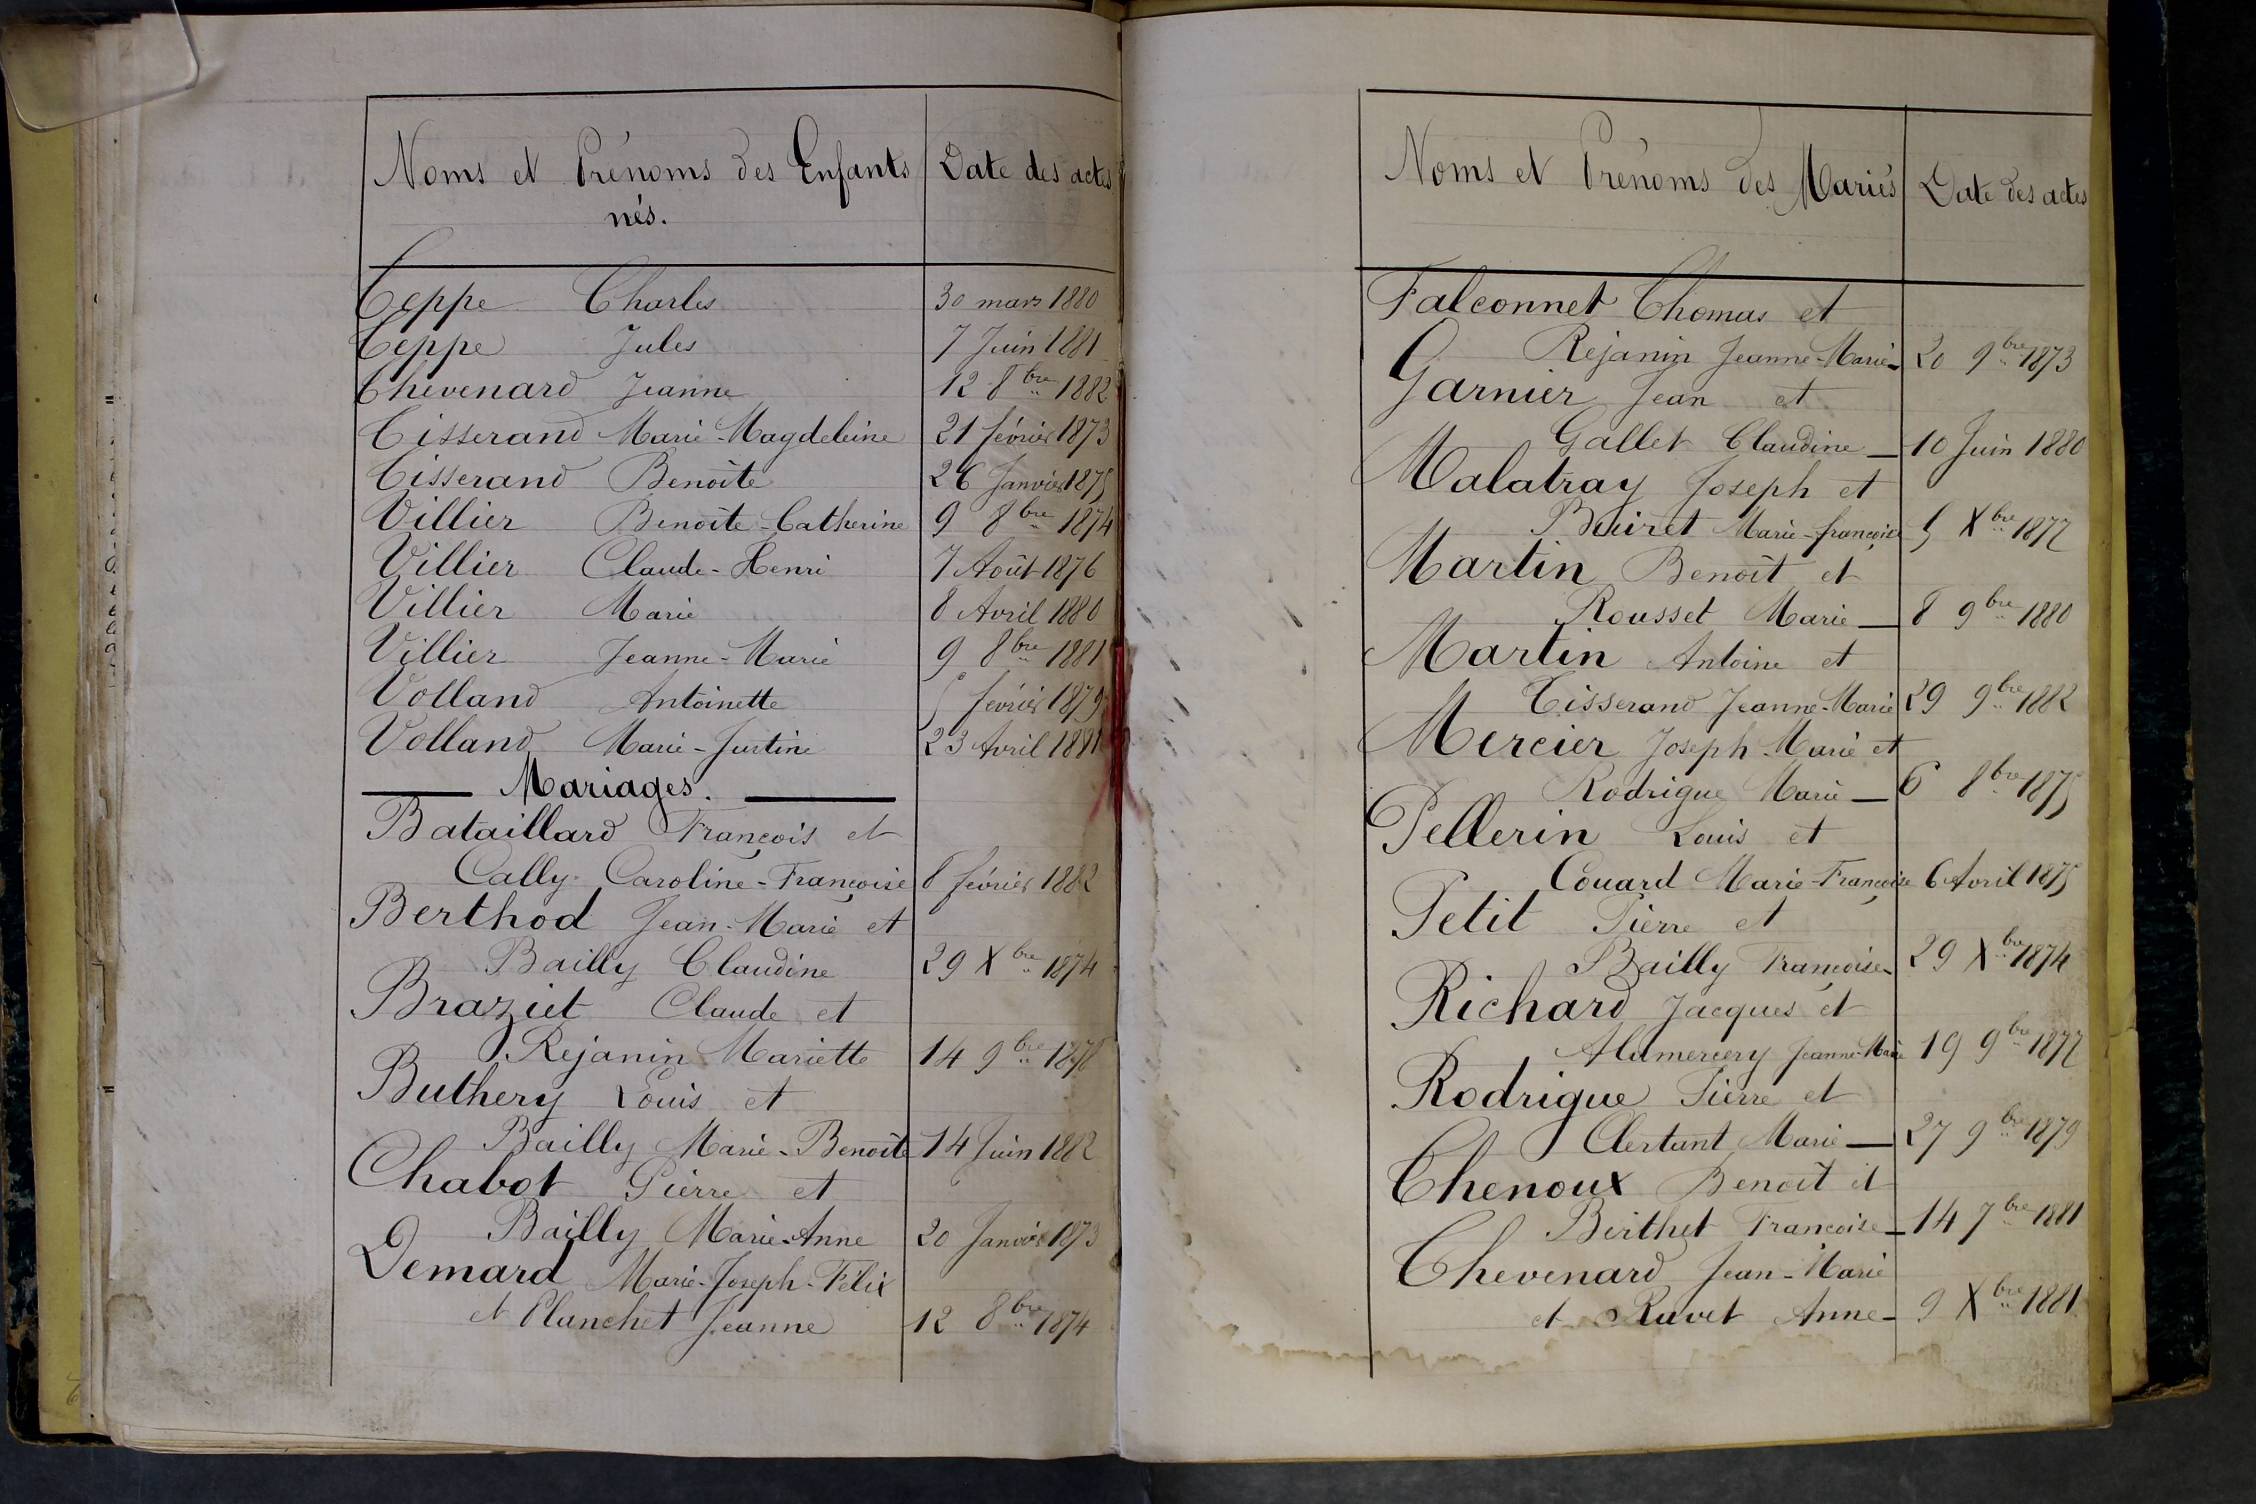 Noms et Prénoms des Enfants Date des actes
nés.
Teppe Charles 30 mars 1880
Teppe Jules 7 Juin 1881
Thévenard Jeanne 12 8bre 1882
Tisserand Marie-Magdeleine 21 février 1873
Tisserand Benoîte 26 Janvier 1875
Villier Benoîte-Catherine 9 8bre 1874
Villier Claude-Henri 7 Août 1876
Villier Marie 8 Avril 1880
Villier Jeanne-Marie 9 8bre 1881
Volland Antoinette 5 février 1879
Volland Marie-Justine 23 Avril 1881
Mariages.
Bataillard François et
Cally Caroline-Françoise 8 février 1882
Berthod Jean-Marie et
Bailly Claudine 29 Xbre 1874
Braziet Claude et
Réjanin Mariette 14 9bre 1878
Buthery Louis et
Bailly Marie-Benoîte 14 Juin 1882
Chabot Pierre et
Bailly Marie-Anne 20 Janvier 1873
Demard Marie-Joseph-Félix
et Planchet Jeanne 12 8bre 1874
Noms et Prénoms des Mariés Date des actes
Falconnet Thomas et
Réjanin Jeanne-Marie 20 9bre 1873
Garnier Jean et
Gallet Claudine 10 Juin 1880
Malatray Joseph et
Buiret Marie-françoise 5 Xbre 1877
Martin Benoît et
Rousset Marie 8 9bre 1880
Martin Antoine et
Tisserand Jeanne-Marie 29 9bre 1882
Mercier Joseph-Marie et
Rodrigue Marie 6 8bre 1875
Pellerin Louis et
Couard Marie-Françoise 6 Avril 1875
Petit Pierre et
Bailly Françoise 29 Xbre 1874
Richard Jacques et
Alamercery Jeanne-Marie 19 9bre 1877
Rodrigue Pierre et
Clertant Marie 27 9bre 1879
Thenoux Benoît et
Berthet Françoise 14 7bre 1881
Thevenard Jean-Marie
et Ravet Anne 9 Xbre 1881